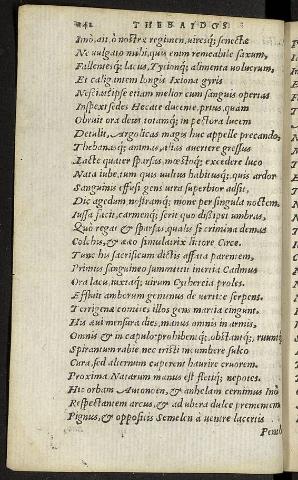 242 THEBAIDOS
Imò, ait, ò nostræ regimen, uiresq; senectæ
Ne uulgata mihi, quis enim remeabile saxum,
Fallentesq; lacus, Tycionq; alimenta uolucrum,
Et caligantem longis Ixiona gyris
Nesciat? ipse etiam melior cum sanguis opertas
Inspexi sedes Hecate ducente, prius, quam
Obruit ora deus, totamq; in pectora lucem
Detulit, Argolicas magis huc appelle precando,
Thebanasq; animas, alias auertere gressus
Lacte quater sparsas, mœstoq; excedere luco
Nata iube, tum quis uultus habitusq; quis ardor
Sanguinis effusi gens utra superbior adsit,
Dic agedum nostramq; mone per singula noctem.
Iussa facit, carmenq; serit quo dissipat umbras,
Quo regat & sparsas, qualis si crimina demas
Colchis, & aæo simulatrix littore Circe.
Tunc his sacrificum dictis affata parentem,
Primus sanguineo summittit inertia Cadmus
Ora lacu, iuxtaq; uirum Cythereia proles.
Effluit amborum geminus de uertice serpens.
Terrigenæ comites illos gens martia cingunt.
His æui mensura dies, manus omnis in armis,
Omnis & in capulo: prohibentq;, obstantq;, ruuntq;
Spirantum rabie nec tristi incumbere sulco
Cura, sed alternum cuperent haurire cruorem.
Proxima Natarum manus est fletiq; nepotes.
Hic orbam Autonoen, & anhelam cernimus Ino
Respectantem arcus, & ad ubera dulce prementem
Pignus, & oppositis Semelen à uentre lacertis
Penth